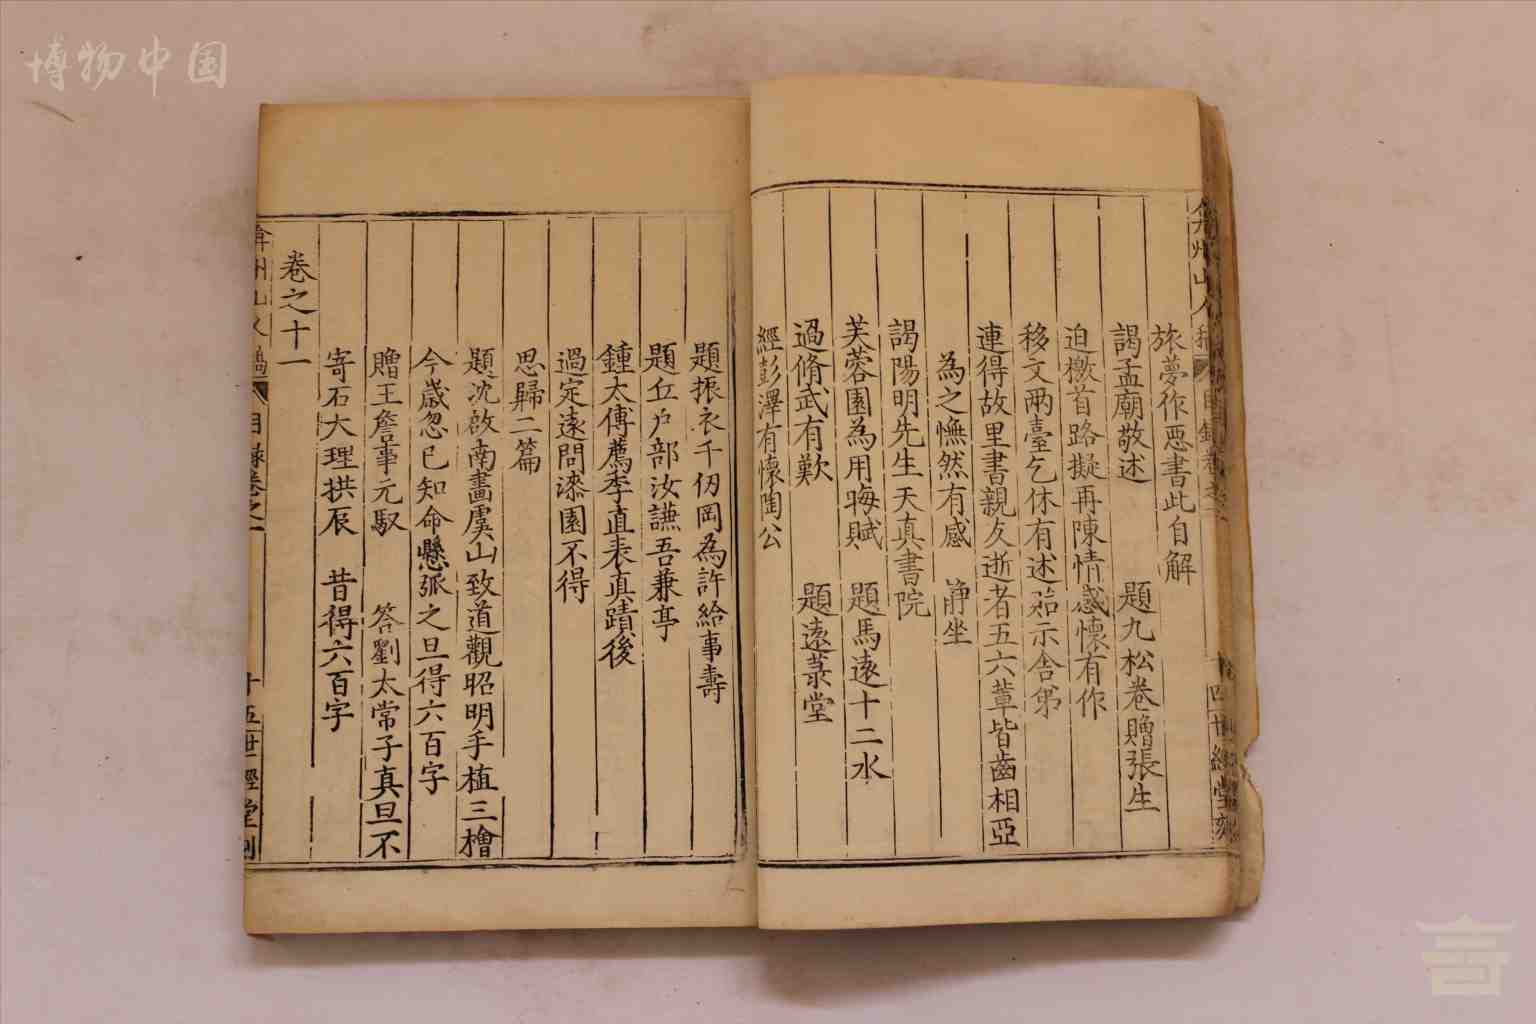 博物中国
弇州山人稿
旅夢作惡書此自解
謁孟廟敬述 題九松卷贈張生
迫檄首路擬再陳情感懷有作
移文兩臺乞休有述詒示舍弟
連得故里書親友逝者五六輩皆齒相亞
為之憮然有感 静坐
謁陽明先生天真書院
芙蓉園為用晦賦 題馬遠十二水
過脩武有歎 題遠菉堂
經彭澤有懷陶公
題振衣千仞岡為許給事壽
題丘户部汝謙吾兼亭
鍾太傅薦季直表真蹟後
過定遠問漆園不得
思歸二篇
題沈啟南畫虞山致道觀昭明手植三檜
今歲忽已知命懸弧之旦得六百字
贈王詹事元馭 答劉太常子真旦不
寄石大理拱辰 昔得六百字
卷之十一
弇州山人稿 目錄卷之一 十五 世經堂刻